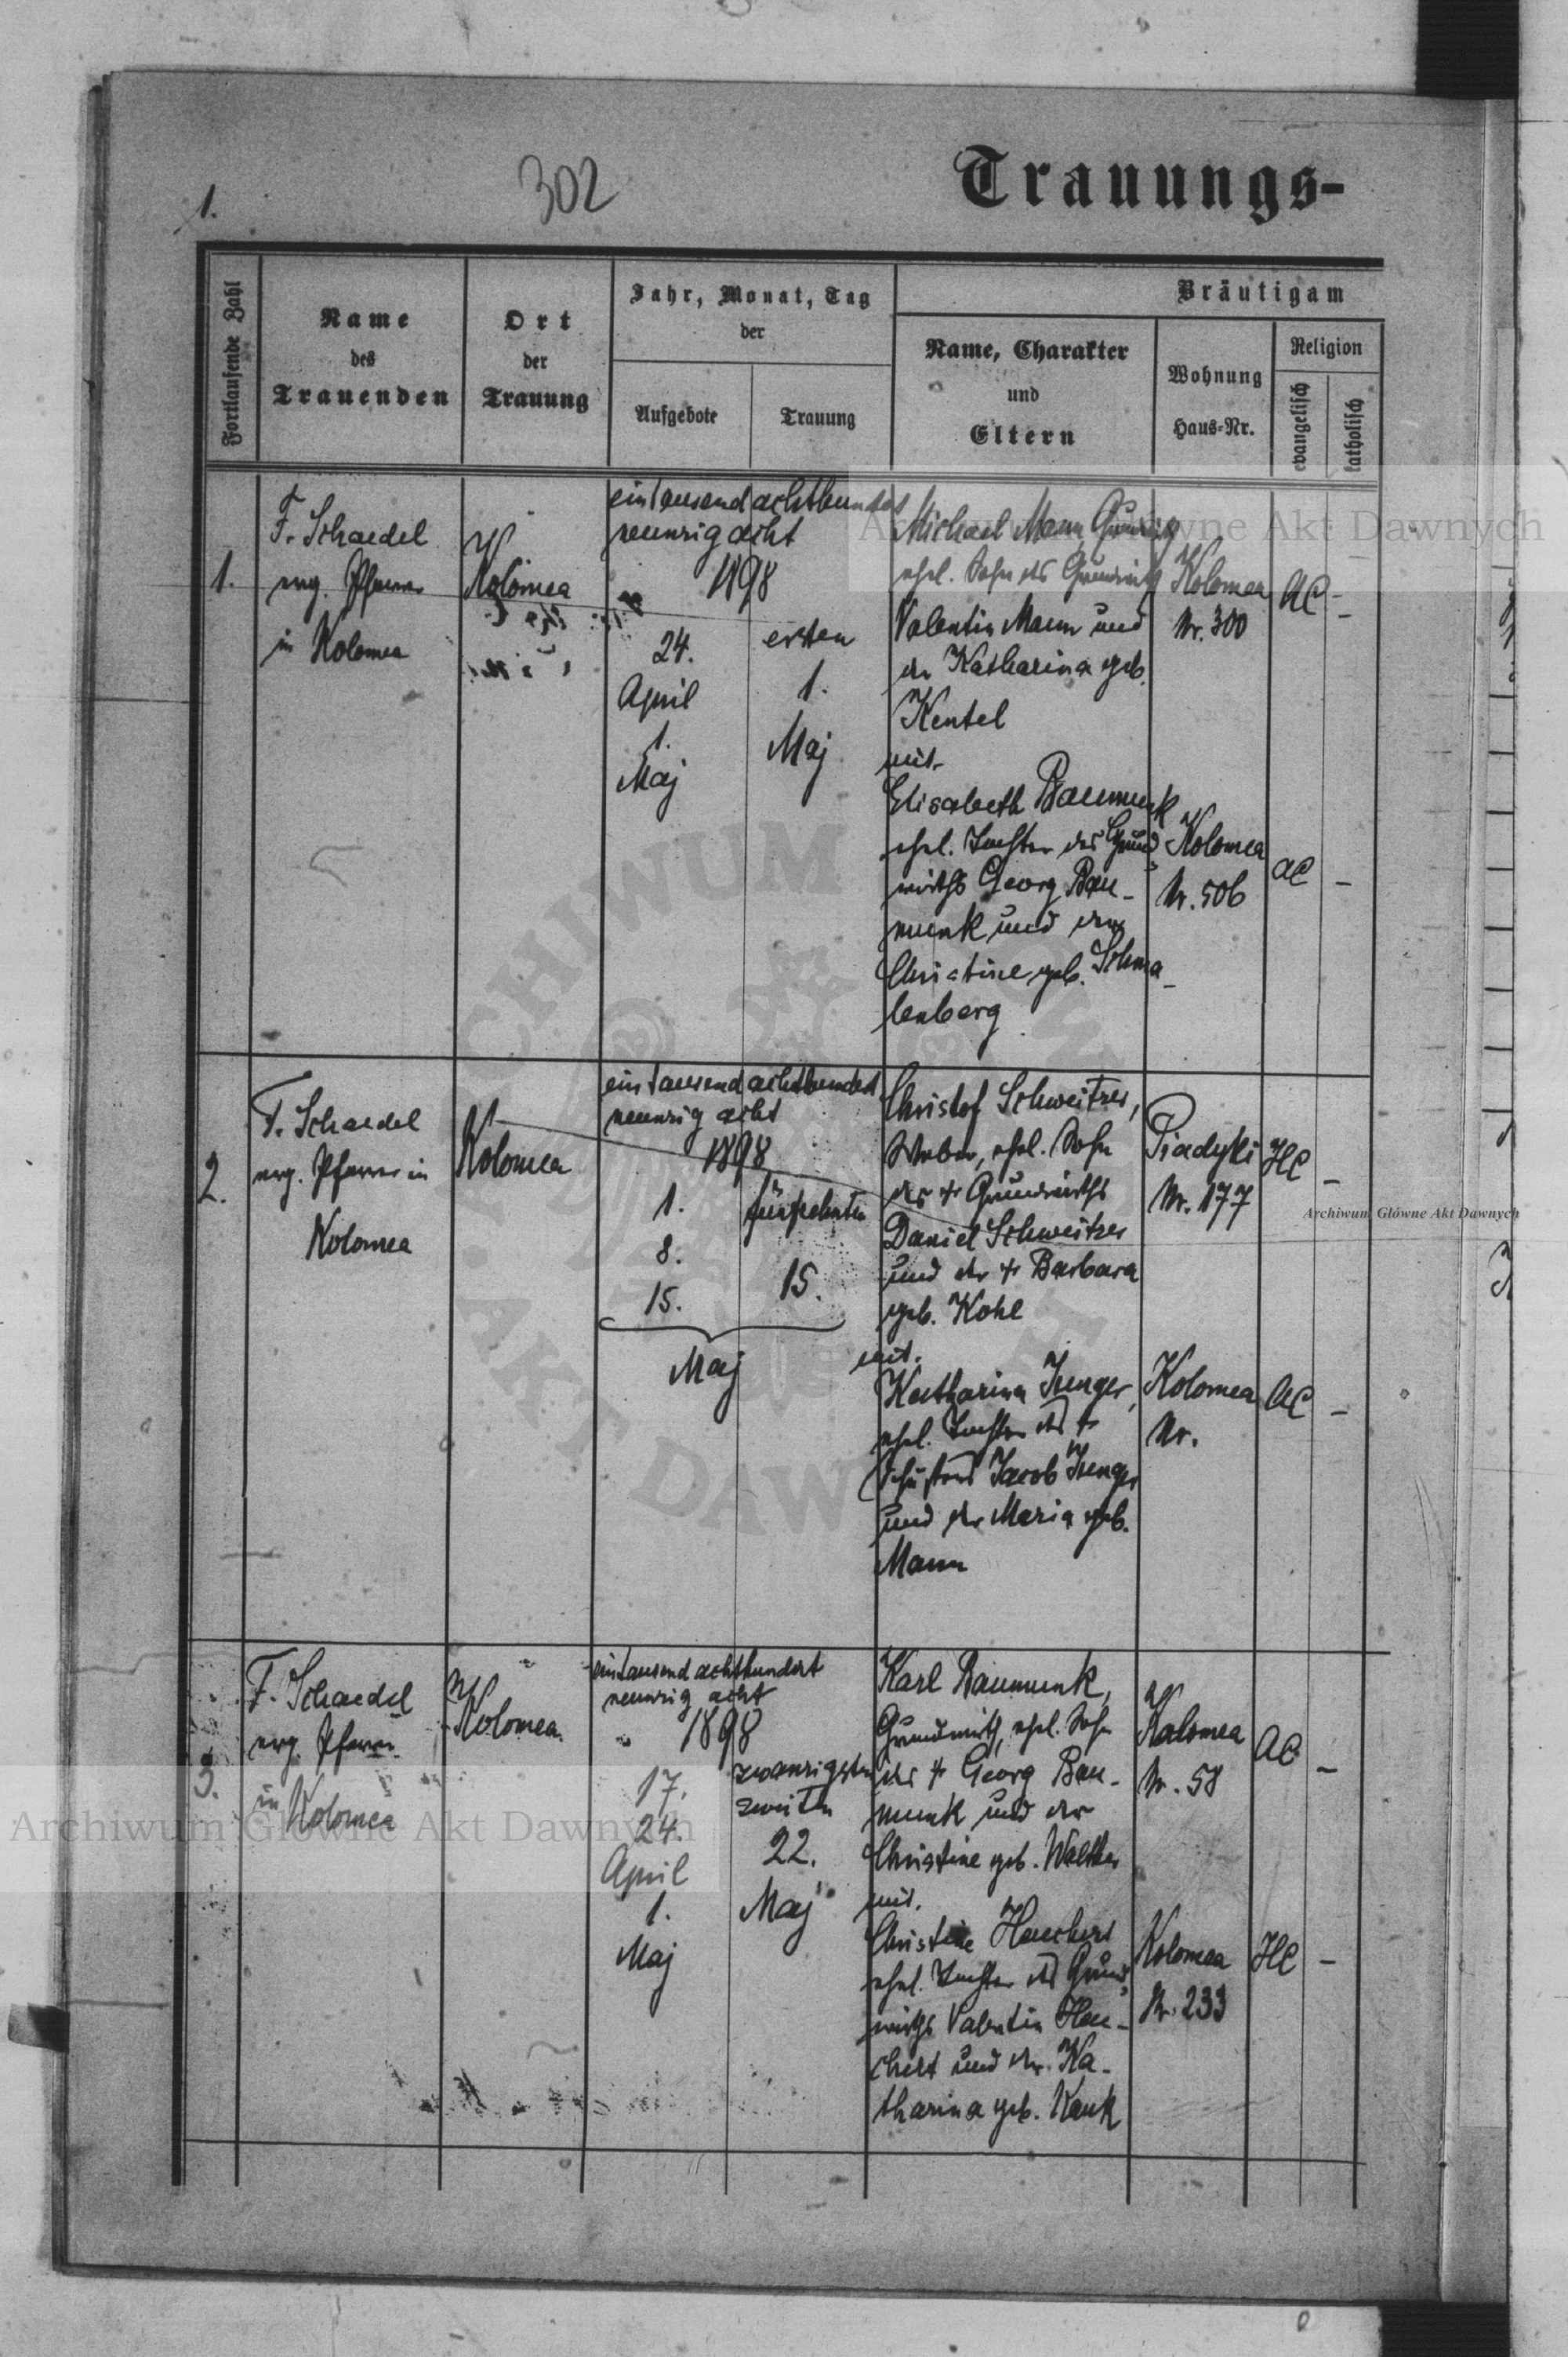 1.
302
Trauungs-
Fortlaufende Zahl
Name
des
Trauenden
Ort
der
Trauung
Jahr, Monat, Tag
der
Aufgebote
Trauung
Bräutigam
Name, Charakter
und
Eltern
Wohnung
Haus-Nr.
Religion
evangelisch
katholisch
1.
F. Schaedel
evg. Pfarrer
in Kolomea
Kolomea
eintausend achthundert
neunzig acht
1898
24.
April
1.
Maj
ersten
1.
Maj
Michael Mann, Grundwirth
ehel. Sohn des Grundwirths
Valentin Mann und
der Katharina geb.
Kentel
mit
Elisabeth Baumunk
ehel. Tochter des Grund-
wirths Georg Bau-
munk und der
Christine geb. Schma-
lenberg
Kolomea
Nr. 300
AC -
Kolomea
Nr. 506
AC -
2.
F. Schaedel
evg. Pfarrer in
Kolomea
Kolomea
eintausend achthundert
neunzig acht
1898
1.
8.
15.
fünfzehnten
15.
Maj
Christof Schweitzer,
Weber, ehel. Sohn
des † Grundwirths
Daniel Schweitzer
und der † Barbara
geb. Kohl
mit
Katharina Junger,
ehel. Tochter des †
Schusters Jacob Junger
und der Maria geb.
Mann
Piadyki
Nr. 177
HC -
Kolomea
Nr.
AC -
3.
F. Schaedel
evg. Pfarrer
in Kolomea
Kolomea
eintausend achthundert
neunzig acht
1898
17.
24.
April
1.
Maj
zwanzigsten
zweiten
22.
Maj
Karl Baumunk,
Grundwirth, ehel. Sohn
des † Georg Bau-
munk und der
Christine geb. Walther
mit
Christine Hauchert
ehel. Tochter des Grund-
wirths Valentin Hau-
chert und der Ka-
tharina geb. Kauk
Kolomea
Nr. 58
AC -
Kolomea
Nr. 233
HC -
Archiwum Główne Akt Dawnych
Archiwum Główne Akt Dawnych
Archiwum Główne Akt Dawnych